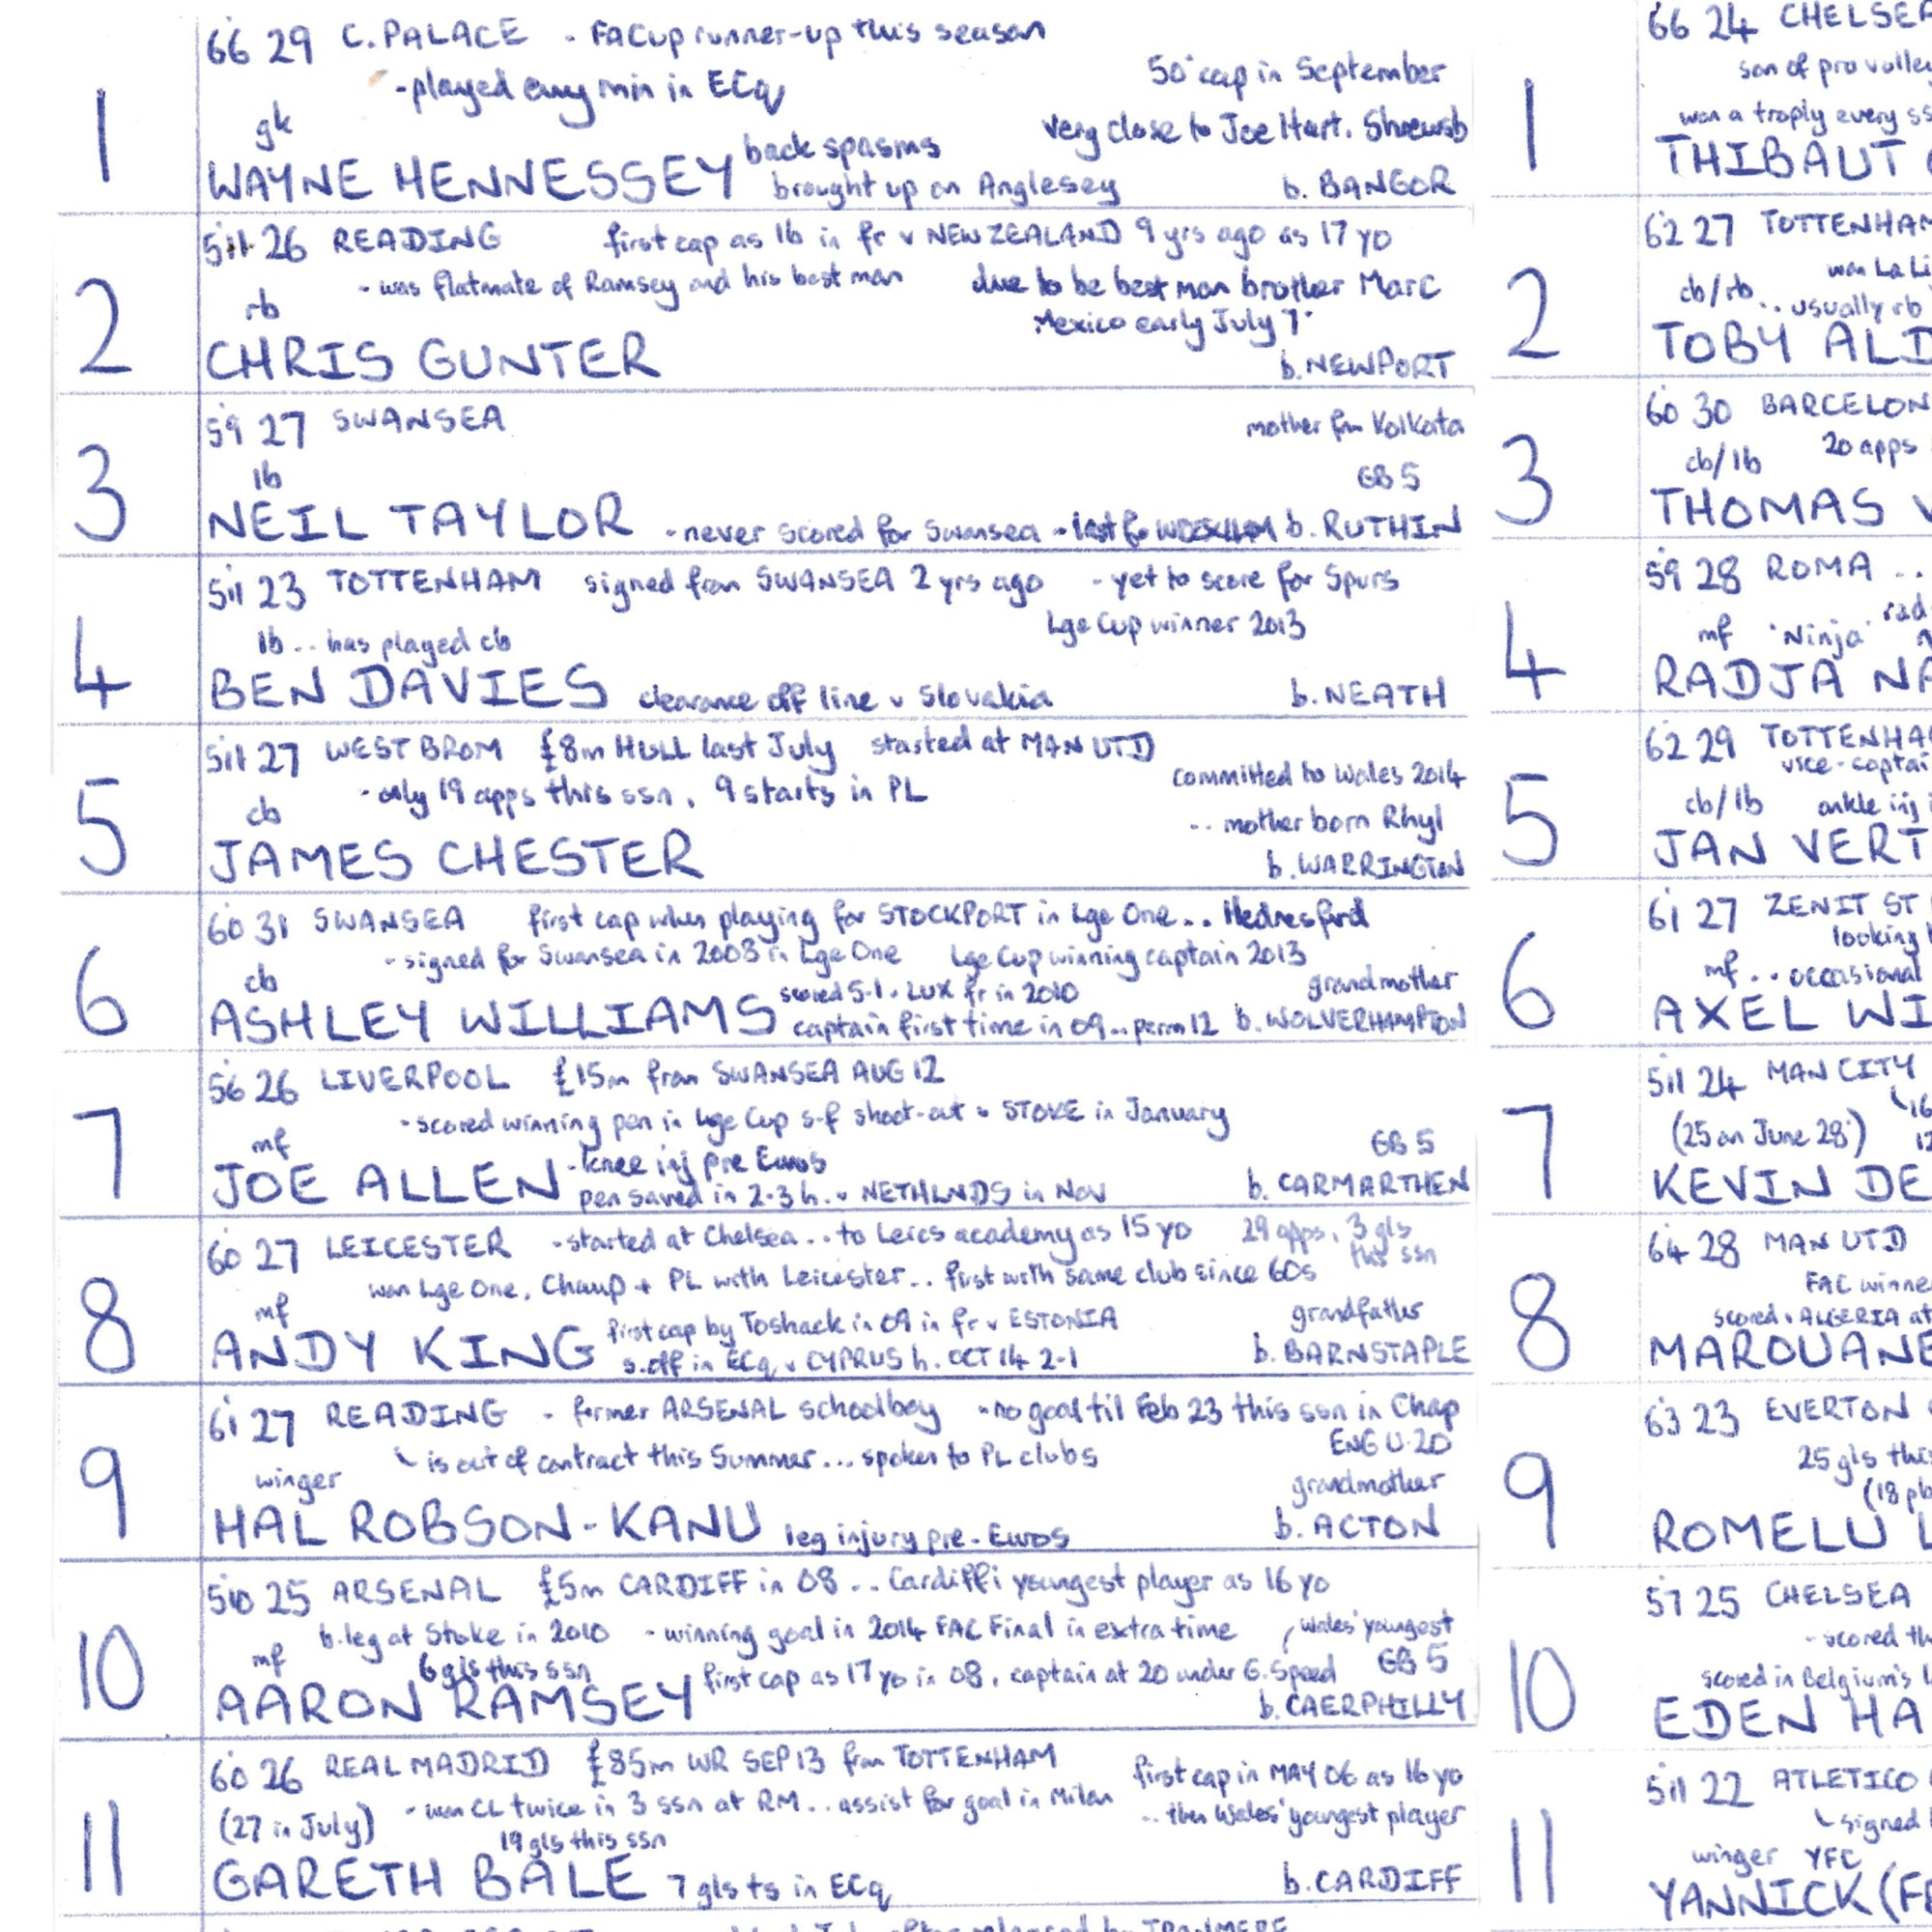 1
66 29 C. PALACE - FACup runner-up this season
- played every min in ECq
50' cap in September
gk
very close to Joe Hart. Shrewsb
WAYNE HENNESSEY back spasms
brought up on Anglesey b. BANGOR
2
5'11 26 READING first cap as lb in fr v NEW ZEALAND 9 yrs ago as 17 yo
- was flatmate of Ramsey and his best man due to be best man brother Marc
rb
Mexico early July 7'
CHRIS GUNTER b. NEWPORT
3
5'9 27 SWANSEA mother fm Kolkata
lb GB 5
NEIL TAYLOR - never scored for Swansea - last for WREXHAM b. RUTHIN
4
5'11 23 TOTTENHAM signed from SWANSEA 2 yrs ago - yet to score for Spurs
lb .. has played cb Lge Cup winner 2013
BEN DAVIES clearance off line v Slovakia b. NEATH
5
5'11 27 WEST BROM £8m HULL last July started at MAN UTD
- only 19 apps this ssn, 9 starts in PL committed to Wales 2014
cb .. mother born Rhyl
JAMES CHESTER b. WARRINGTON
6
6'0 31 SWANSEA first cap when playing for STOCKPORT in Lge One... Hednesford
- signed for Swansea in 2003 in Lge One Lge Cup winning captain 2013
cb scored 5-1 v LUX fr in 2010 grandmother
ASHLEY WILLIAMS captain first time in 09.. perm 12 b. WOLVERHAMPTON
7
5'6 26 LIVERPOOL £15m from SWANSEA AUG 12
- scored winning pen in Lge Cup s-f shoot-out v STOKE in January
mf - knee inj pre Euros GB 5
JOE ALLEN pen saved in 2-3 h. v NETHLNDS in Nov b. CARMARTHEN
8
6'0 27 LEICESTER - started at Chelsea .. to Leics academy as 15 yo 29 apps, 3 gls this ssn
won Lge One, Champ + PL with Leicester .. first with same club since 60s
mf first cap by Toshack in 09 in fr v ESTONIA grandfather
ANDY KING s.off in ECq v CYPRUS h. OCT 14 2-1 b. BARNSTAPLE
9
6'1 27 READING - former ARSENAL schoolboy - no goal til Feb 23 this ssn in Chap
is out of contract this Summer... spoken to PL clubs ENG U-20
winger grandmother
HAL ROBSON-KANU leg injury pre-Euros b. ACTON
10
5'10 25 ARSENAL £5m CARDIFF in 08 .. Cardiff's youngest player as 16 yo
b. leg at Stoke in 2010 - winning goal in 2014 FAC Final in extra time Wales' youngest
mf 6 gls this ssn first cap as 17 yo in 08, captain at 20 under G. Speed GB 5
AARON RAMSEY b. CAERPHILLY
11
6'0 26 REAL MADRID £85m WR SEP 13 from TOTTENHAM first cap in MAY 06 as 16 yo
(27 in July) - won CL twice in 3 ssn at RM .. assist for goal in Milan .. then Wales' youngest player
19 gls this ssn
GARETH BALE 7 gls ts in ECq b. CARDIFF
1
66 24 CHELSEA
son of pro
won a trophy every
THIBAUT
2
6'2 27 TOTTENHAM
won La Li
cb/rb .. usually rb
TOBY ALD
3
6'0 30 BARCELON
cb/lb 20 apps
THOMAS V
4
5'9 28 ROMA ..
mf 'Ninja'
RADJA NA
5
6'2 29 TOTTENHA
vice-captai
cb/lb ankle inj
JAN VERT
6
6'1 27 ZENIT ST
looking
mf .. occasional
AXEL WI
7
5'11 24 MAN CITY
(25 on June 28')
KEVIN DE
8
6'4 28 MAN UTD
FAC winne
scored v ALGERIA at
MAROUANE
9
6'3 23 EVERTON
25 gls this
(18
ROMELU L
10
5'7 25 CHELSEA
- scored th
scored in Belgium's
EDEN HA
11
5'11 22 ATLETICO
signed
winger YFC
YANNICK (FE